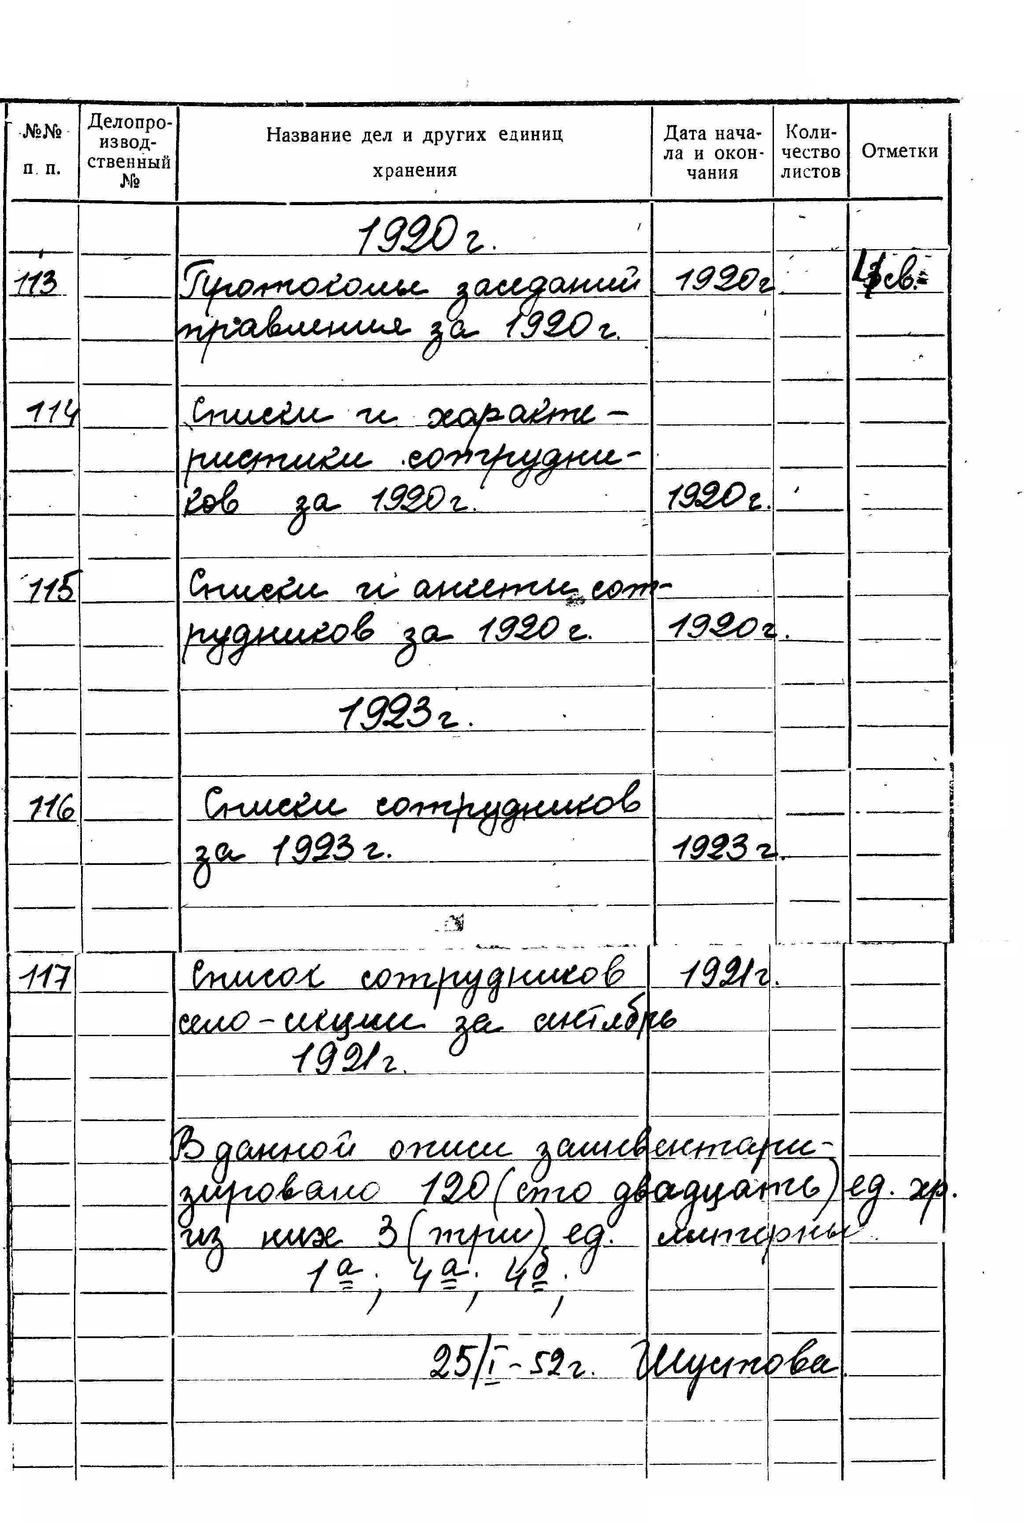 №№ п. п. Делопро-извод-ственный № Название дел и других единиц хранения Дата нача-ла и окон-чания Коли-чество листов Отметки
1920 г.
113 Протоколы заседаний 1920 г. св.
правления за 1920 г.
114 Списки и характе-
ристики сотрудни-
ков за 1920 г. 1920 г.
115 Списки и анкеты сот-
рудников за 1920 г. 1920 г.
1923 г.
116 Списки сотрудников
за 1923 г. 1923 г.
117 Список сотрудников 1921 г.
за октябрь
1921 г.
В данной описи заинвентари-
зировано 120 (сто двадцать) ед. хр.
из них 3 (три) ед. литерны
1а; 4а; 4б;
25/I-52 г. Шустова.